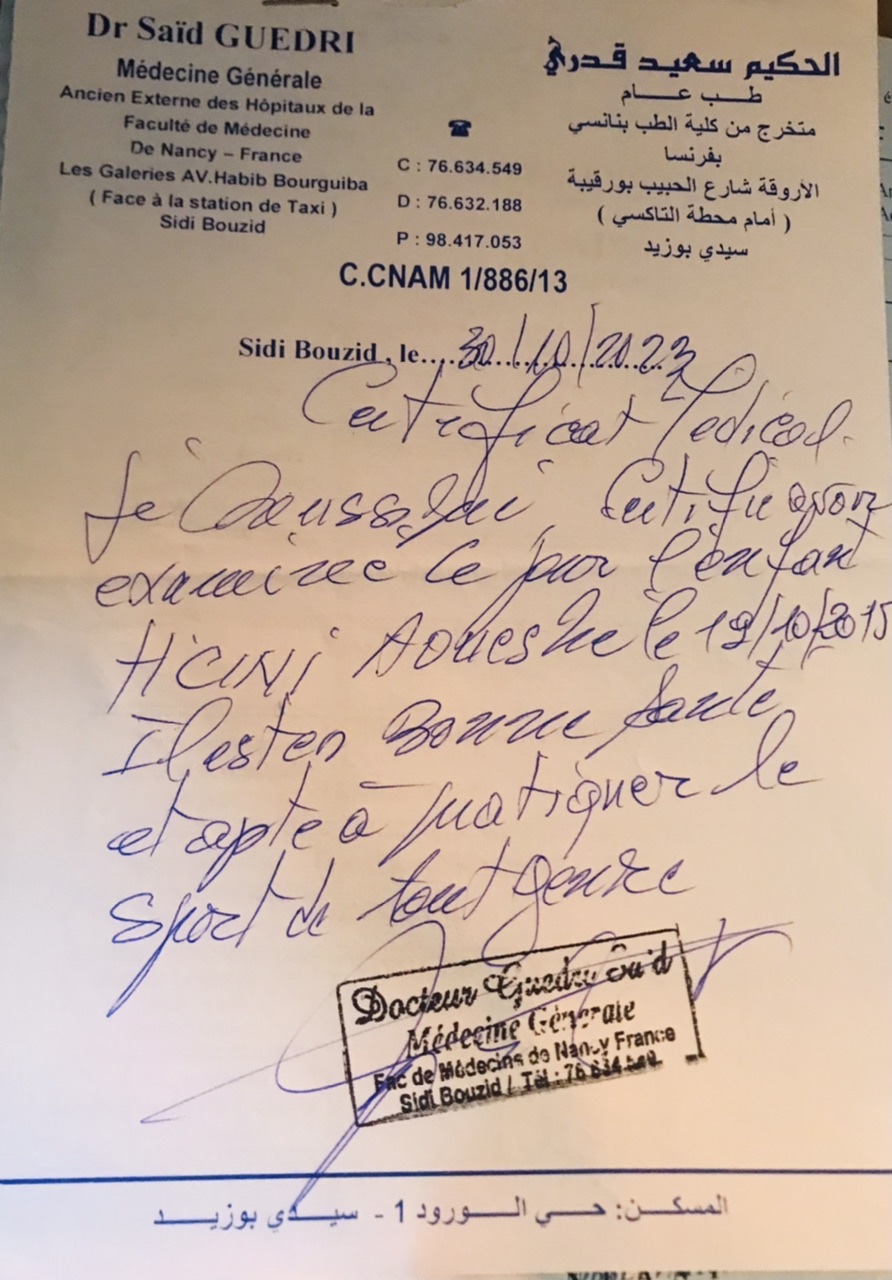 Dr Saïd GUEDRI
Médecine Générale
Ancien Externe des Hôpitaux de la
Faculté de Médecine
De Nancy – France
Les Galeries AV.Habib Bourguiba
( Face à la station de Taxi )
Sidi Bouzid
☎
C : 76.634.549
D : 76.632.188
P : 98.417.053
الحكيم سعيد قدري
طب عام
متخرج من كلية الطب بنانسي
بفرنسا
الأروقة شارع الحبيب بورقيبة
( أمام محطة التاكسي )
سيدي بوزيد
C.CNAM 1/886/13
Sidi Bouzid , le....30/10/2023
Certificat Médical.
Je Soussigné, Certifie avoir
examinée ce jour l'enfant
HCINI le 19/10/2015
Il est en Bonne Santé
et apte à pratiquer le
Sport de tout genre
Docteur Guedri Saïd
Médecine Générale
Fac de Médecine de Nancy France
Sidi Bouzid / Tél : 76 634 549
المسكن: حي الورود 1 - سيدي بوزيد